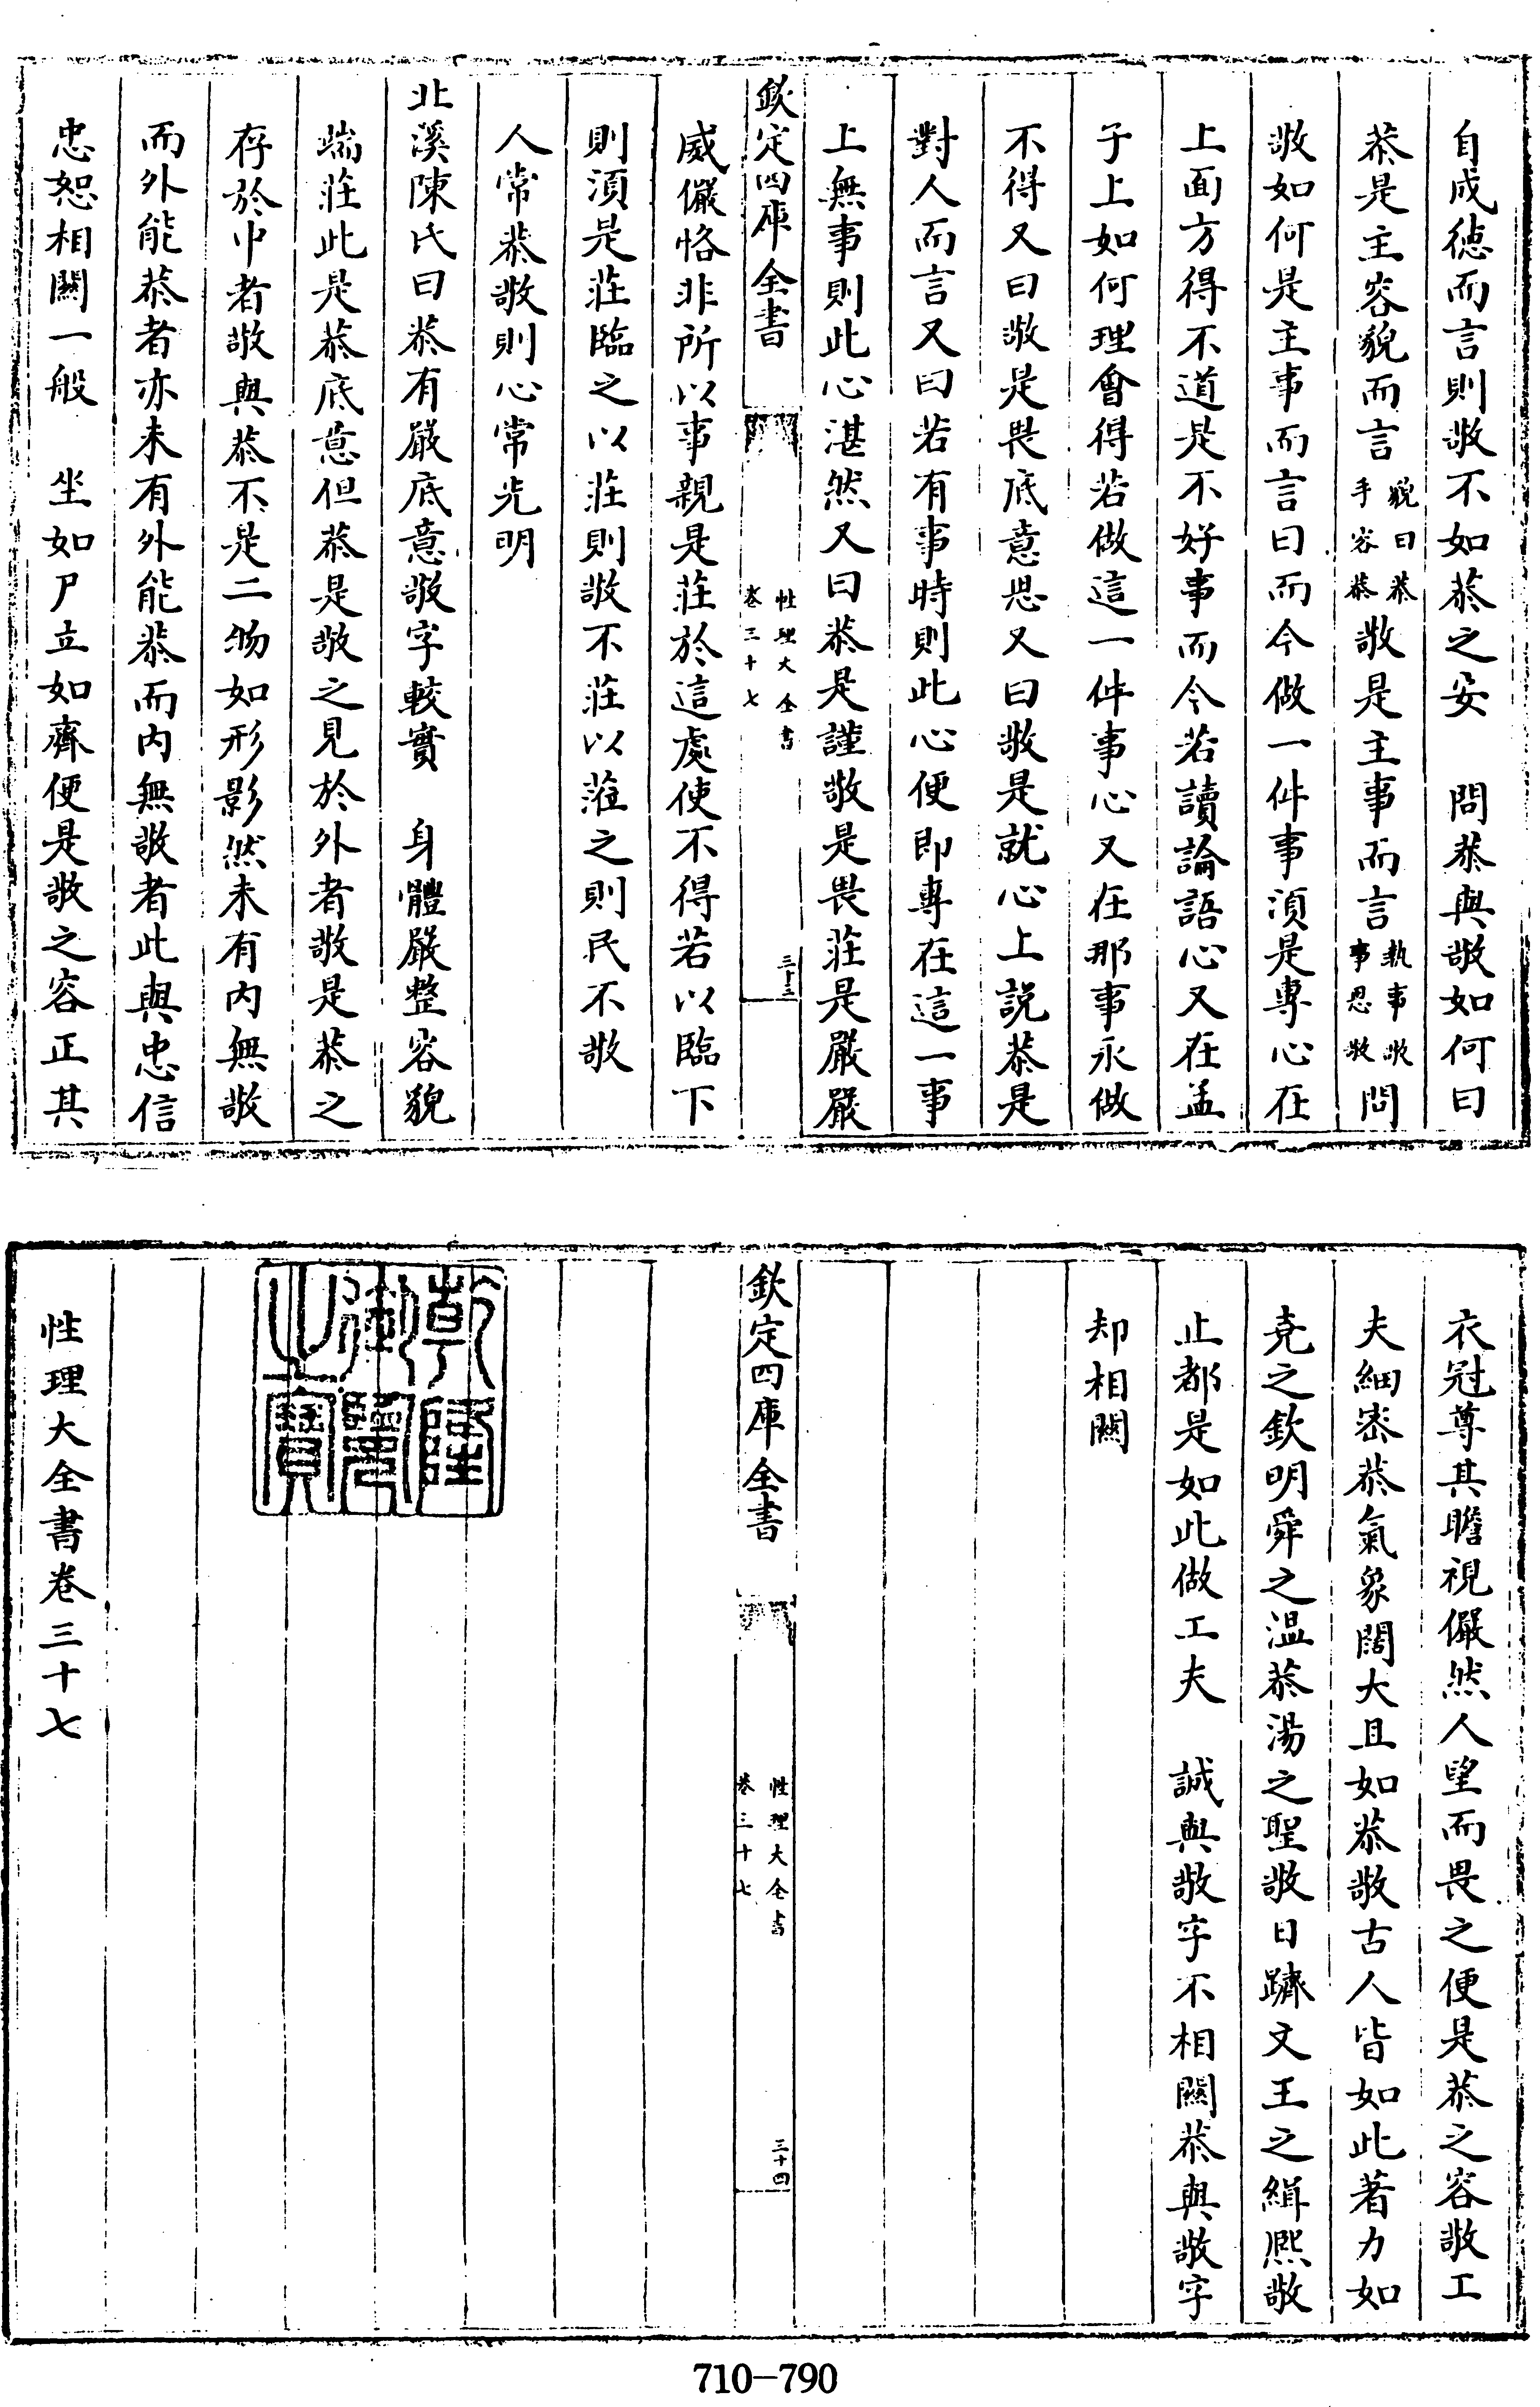 自成徳而言則敬不如恭之安　問恭與敬如何曰
恭是主容貌而言貌曰恭手容恭敬是主事而言執事敬事思敬問
敬如何是主事而言曰而今做一件事須是專心在
上面方得不道是不好事而今若讀論語心又在孟
子上如何理㑹得若做這一件事心又在那事永做
不得又曰敬是畏底意思又曰敬是就心上說恭是
對人而言又曰若有事時則此心便即專在這一事
上無事則此心湛然又曰恭是謹敬是畏莊是嚴嚴
欽定四庫全書
性理大全書
卷三十七
三十三
威儼恪非所以事親是莊於這處使不得若以臨下
則須是莊臨之以莊則敬不莊以蒞之則民不敬
人常恭敬則心常光明
北溪陳氏曰恭有嚴底意敬字較實　身體嚴整容貌
端莊此是恭底意但恭是敬之見於外者敬是恭之
存於中者敬與恭不是二物如形影然未有内無敬
而外能恭者亦未有外能恭而内無敬者此與忠信
忠恕相關一般　坐如尸立如齊便是敬之容正其
衣冠尊其瞻視儼然人望而畏之便是恭之容敬工
夫細宻恭氣象闊大且如恭敬古人皆如此著力如
堯之欽明舜之温恭湯之聖敬日躋文王之緝熈敬
止都是如此做工夫　誠與敬字不相關恭與敬字
却相關
欽定四庫全書
性理大全書
卷三十七
三十四
乾隆御覽之寶
性理大全書卷三十七
710-790